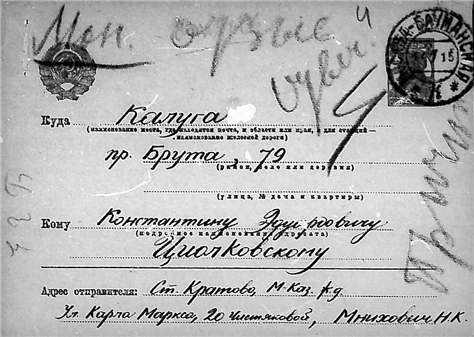 Куда Калуга
(наименование места, где находится почта, и области или края, для станций — наименование железной дороги)
пр. Брута, 79
(район, село или деревня)
(улица, № дома и квартиры)
Кому Константину Эдуардовичу
(подробное наименование адресата)
Циолковскому
Адрес отправителя: Ст. Кратово, М.Каз. ж.д.
Ул. Карла Маркса, 20 Чистяковой, Мнихович Н.К.